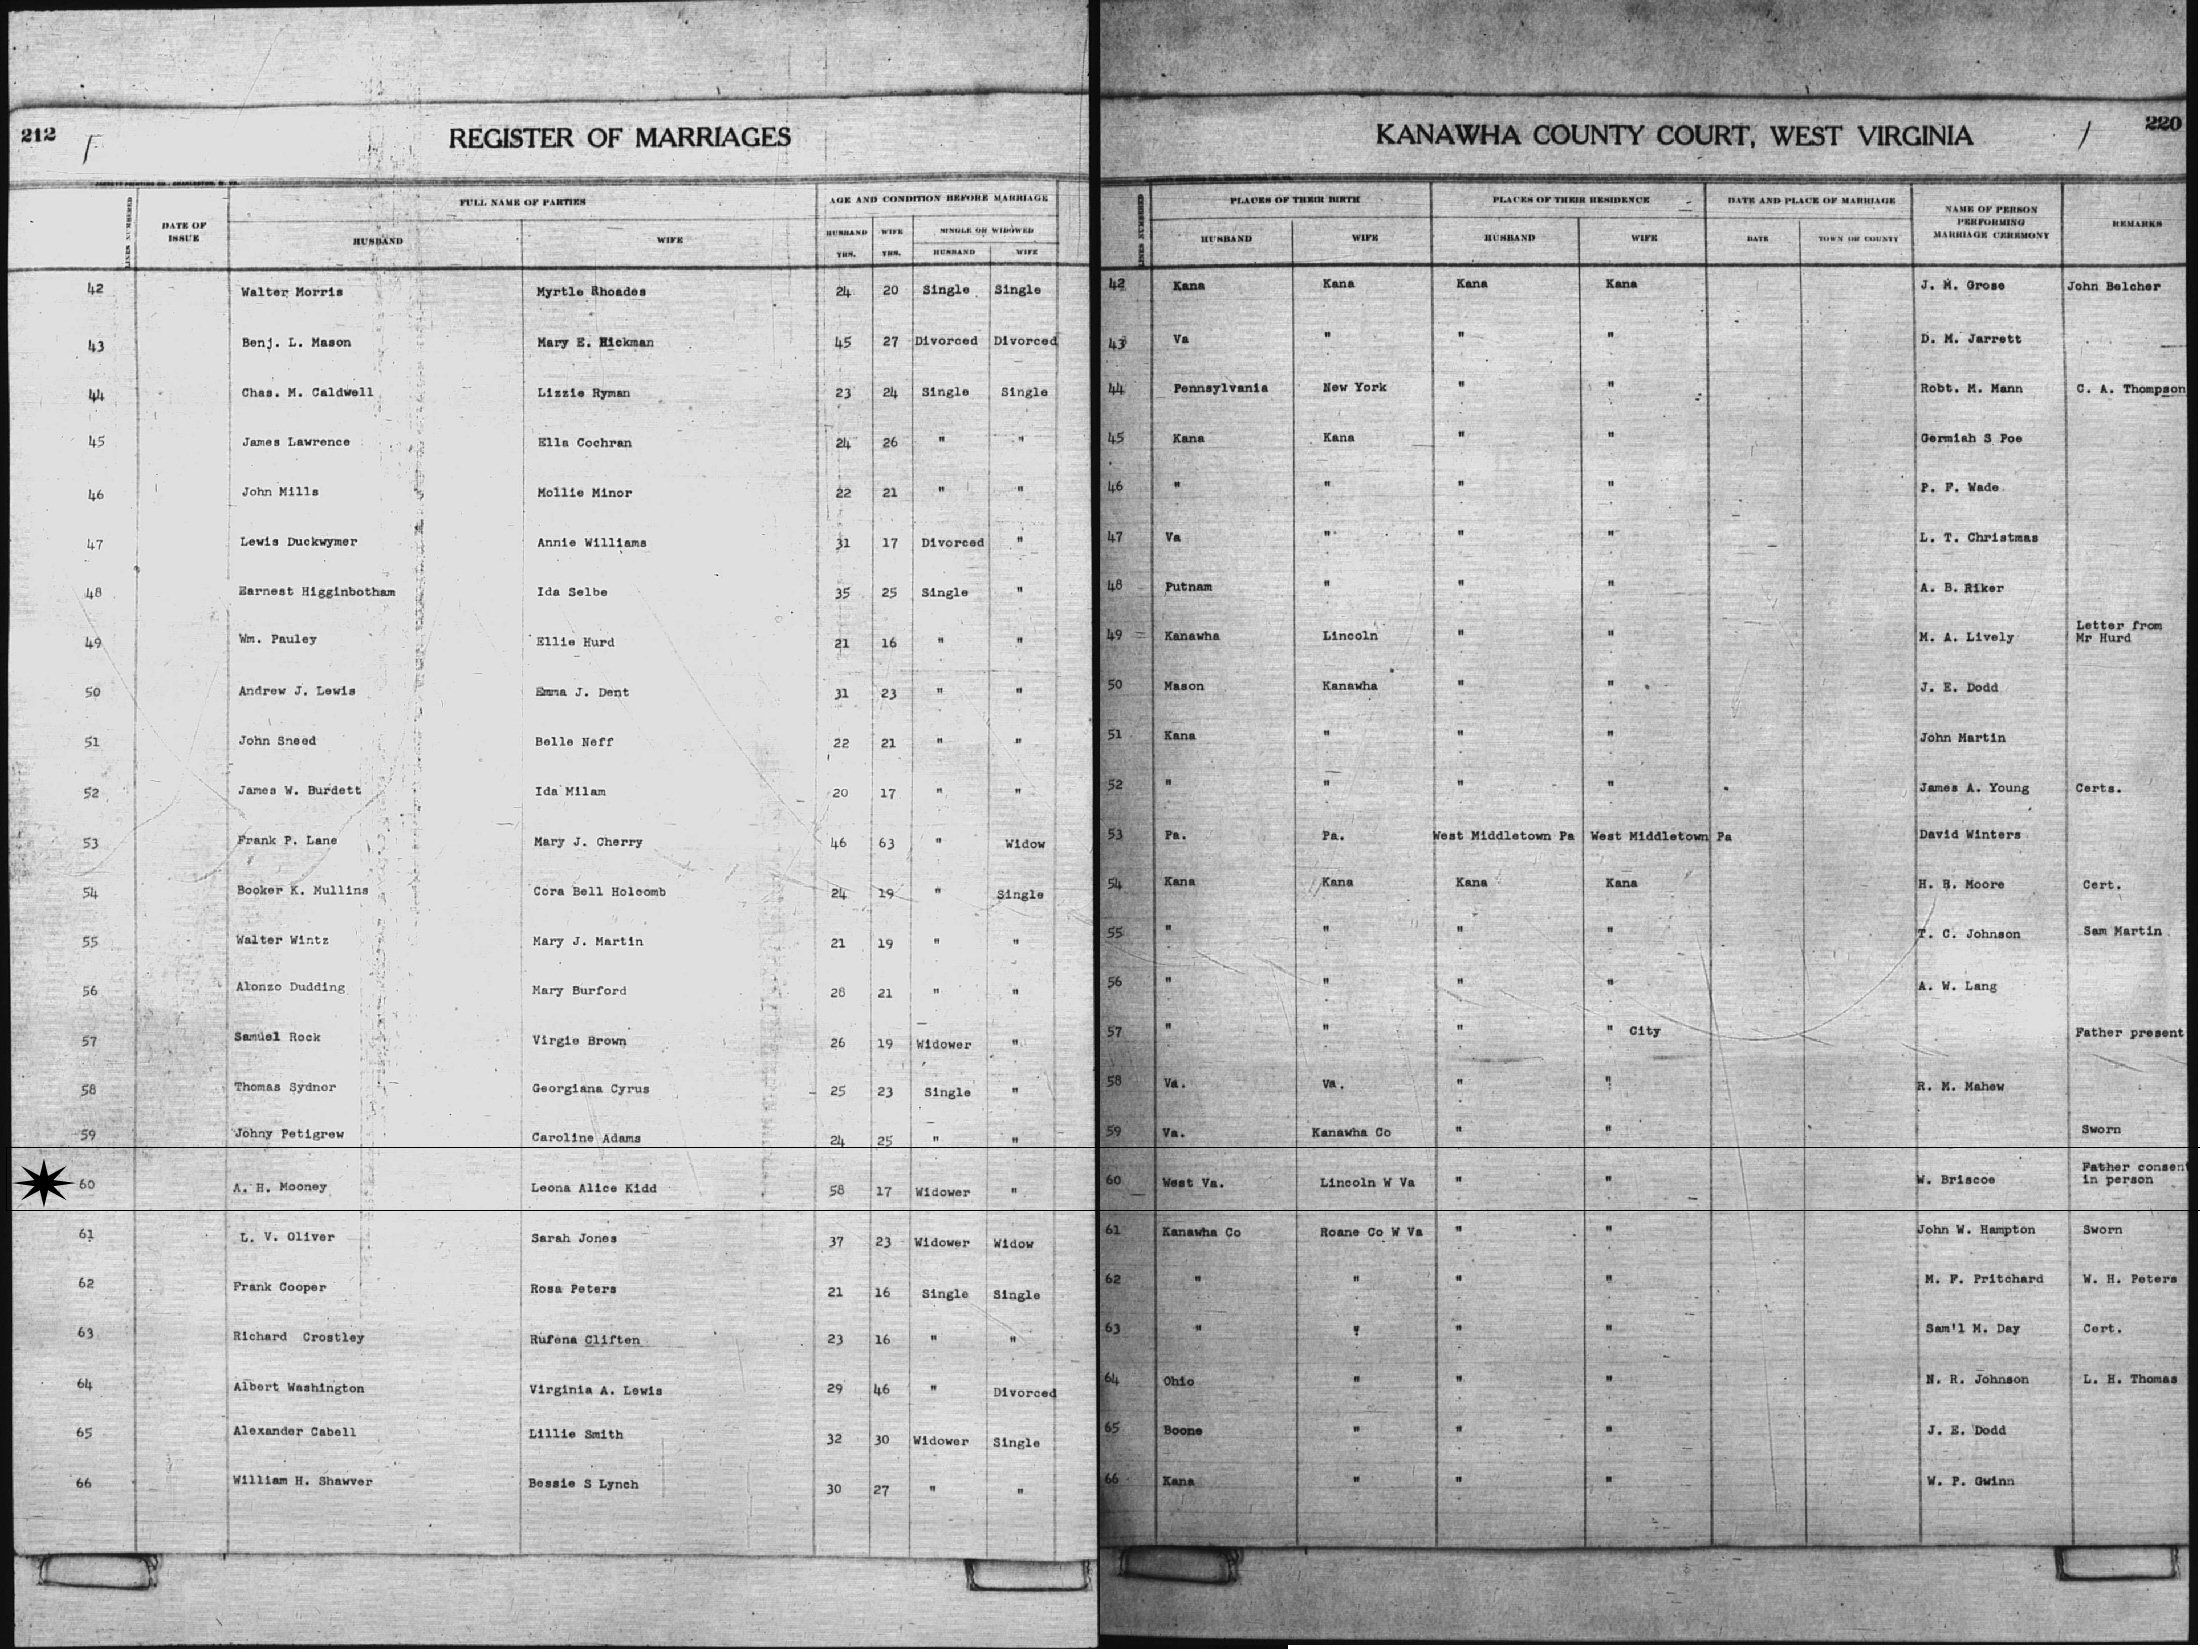 212
REGISTER OF MARRIAGES
JARRETT PRINTING CO., CHARLESTON, W. VA.
LINES NUMBERED
DATE OF ISSUE
FULL NAME OF PARTIES
HUSBAND WIFE
AGE AND CONDITION BEFORE MARRIAGE
HUSBAND YRS. WIFE YRS. SINGLE OR WIDOWED
HUSBAND WIFE
42 Walter Morris Myrtle Rhoades 24 20 Single Single
43 Benj. L. Mason Mary E. Hickman 45 27 Divorced Divorced
44 Chas. M. Caldwell Lizzie Ryman 23 24 Single Single
45 James Lawrence Ella Cochran 24 26 " "
46 John Mills Mollie Minor 22 21 " "
47 Lewis Duckwymer Annie Williams 31 17 Divorced "
48 Earnest Higginbotham Ida Selbe 35 25 Single "
49 Wm. Pauley Ellie Hurd 21 16 " "
50 Andrew J. Lewis Emma J. Dent 31 23 " "
51 John Sneed Belle Neff 22 21 " "
52 James W. Burdett Ida Milam 20 17 " "
53 Frank P. Lane Mary J. Cherry 46 63 " Widow
54 Booker K. Mullins Cora Bell Holcomb 24 19 " Single
55 Walter Wintz Mary J. Martin 21 19 " "
56 Alonzo Dudding Mary Burford 28 21 " "
57 Samuel Rock Virgie Brown 26 19 Widower "
58 Thomas Sydnor Georgiana Cyrus 25 23 Single "
59 Johny Petigrew Caroline Adams 24 25 " "
60 A. H. Mooney Leona Alice Kidd 58 17 Widower "
61 L. V. Oliver Sarah Jones 37 23 Widower Widow
62 Frank Cooper Rosa Peters 21 16 Single Single
63 Richard Crostley Rufena Cliften 23 16 " "
64 Albert Washington Virginia A. Lewis 29 46 " Divorced
65 Alexander Cabell Lillie Smith 32 30 Widower Single
66 William H. Shawver Bessie S Lynch 30 27 " "
KANAWHA COUNTY COURT, WEST VIRGINIA
220
LINES NUMBERED
PLACES OF THEIR BIRTH PLACES OF THEIR RESIDENCE DATE AND PLACE OF MARRIAGE NAME OF PERSON PERFORMING MARRIAGE CEREMONY REMARKS
HUSBAND WIFE HUSBAND WIFE DATE TOWN OR COUNTY
42 Kana Kana Kana Kana J. M. Grose John Belcher
43 Va " " " D. M. Jarrett
44 Pennsylvania New York " " Robt. M. Mann C. A. Thompson
45 Kana Kana " " Germiah S Poe
46 " " " " P. F. Wade
47 Va " " " L. T. Christmas
48 Putnam " " " A. B. Riker
49 Kanawha Lincoln " " M. A. Lively Letter from Mr Hurd
50 Mason Kanawha " " J. E. Dodd
51 Kana " " " John Martin
52 " " " " James A. Young Certs.
53 Pa. Pa. West Middletown Pa West Middletown Pa David Winters
54 Kana Kana Kana Kana H. B. Moore Cert.
55 " " " " T. C. Johnson Sam Martin
56 " " " " A. W. Lang
57 " " " " City Father present
58 Va. Va. " " R. M. Mahew
59 Va. Kanawha Co " " Sworn
60 West Va. Lincoln W Va " " W. Briscoe Father consent in person
61 Kanawha Co Roane Co W Va " " John W. Hampton Sworn
62 " " " " M. F. Pritchard W. H. Peters
63 " " " " Sam'l M. Day Cert.
64 Ohio " " " N. R. Johnson L. H. Thomas
65 Boone " " " J. E. Dodd
66 Kana " " " W. P. Gwinn